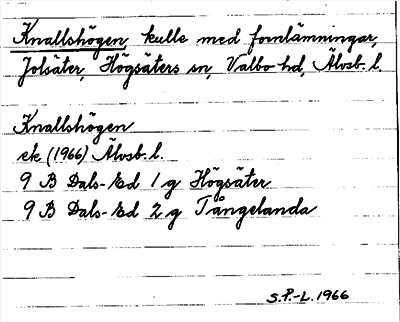 Knallshögen, kulle med fornlämningar,
Jolsäter, Högsäters sn, Valbo hd, Älvsb. l.
Knallshögen
ek. (1966) Älvsb. l.
9 B Dals-Ed 1 g Högsäter
9 B Dals-Ed 2 g Tångelanda
S.P.-L. 1966